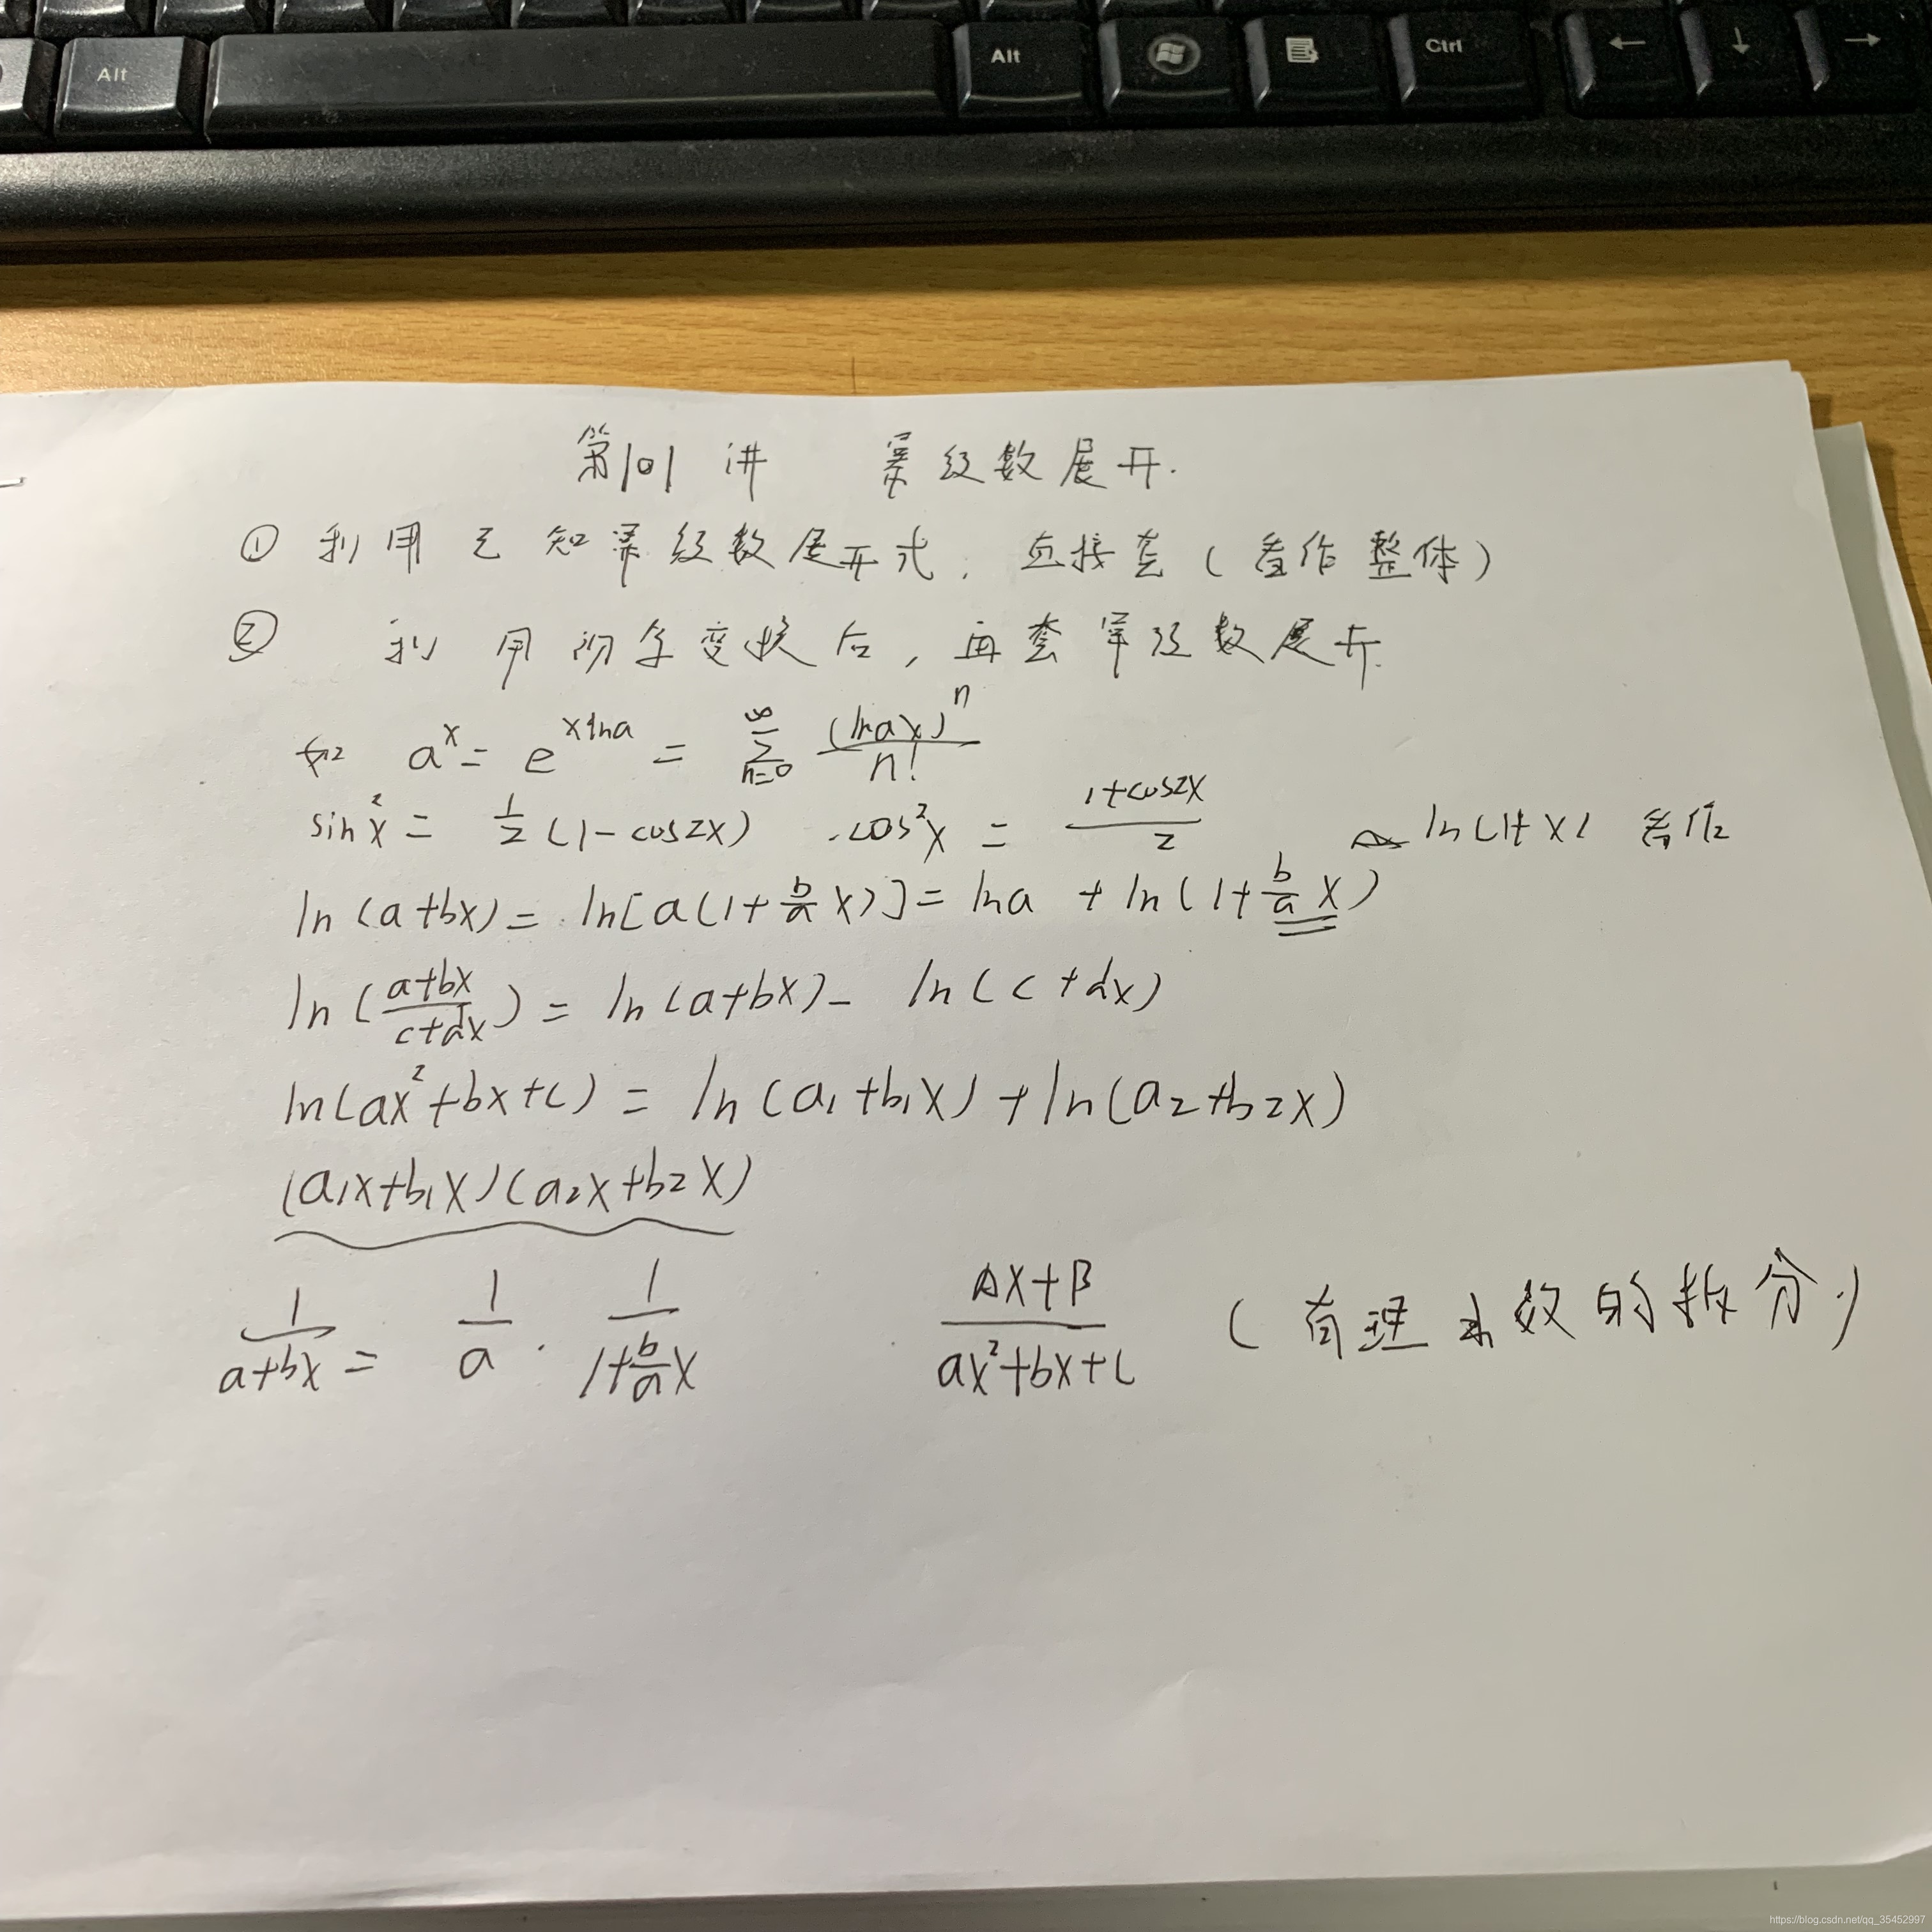 Alt Alt Ctrl ← ↓ →
第101讲 幂级数展开.
① 利用已知幂级数展开式, 直接套(看作整体)
② 利用初等变换后, 再套幂级数展开.
如 a^x = e^{xlna} = ∑_{n=0}^{∞} (lnax)^n / n!
sin²x = 1/2 (1-cos2x) . cos²x = (1+cos2x)/2 ln(1+x) 看作
ln(a+bx) = ln[a(1+b/a x)] = lna + ln(1+b/a x)
ln((a+bx)/(c+dx)) = ln(a+bx) - ln(c+dx)
ln(ax²+bx+c) = ln(a₁+b₁x)+ln(a₂+b₂x)
(a₁x+b₁x)(a₂x+b₂x)
1/(a+bx) = 1/a · 1/(1+b/a x) (Ax+B)/(ax²+bx+c) (有理 数的拆分)
https://blog.csdn.net/qq_35452997